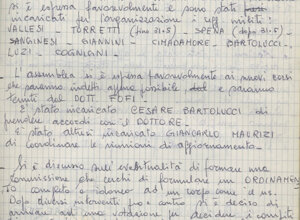 si è espressa favorevolmente e sono stati
incaricati per l'organizzazione i segg. militi:
VALLESI - TORRETTI (fino 31.5) - SPENA (dopo 31.5) -
SANGINESI GIANNINI - CIMADAMORE - BARTOLUCCI -
LUZI - COGNIGNI -
L'assemblea si è espressa favorevolmente ai nuovi corsi
che saranno indetti appena possibile e saranno
tenuti dal DOTT. FOFI.
È stato incaricato CESARE BARTOLUCCI di
prendere accordi con il DOTTORE.
È stato altresì incaricato GIANCARLO MAURIZI
di coordinare le riunioni di aggiornamento.
Si è discusso sull'eventualità di formare una
commissione che cerchi di formulare un ORDINAMEN
TO completo e idoneo ad un corpo come il ns.
Dopo diversi interventi pro e contro si è deciso di
arrivare ad una votazione per decidere i compiti